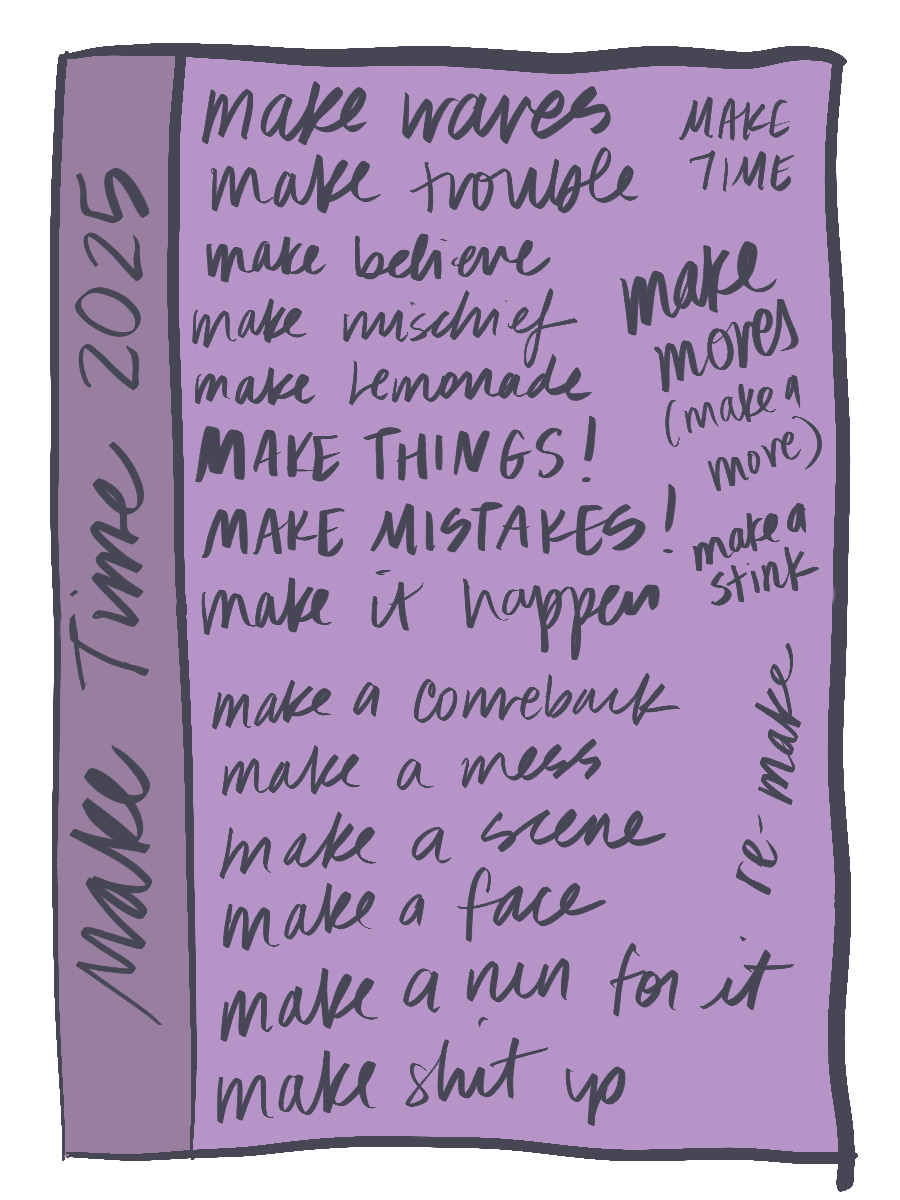 Make Time 2025
make waves
make trouble
make believe
make mischief
make Lemonade
MAKE THINGS!
MAKE MISTAKES!
make it happen
make a comeback
make a mess
make a scene
make a face
make a run for it
make shit up
MAKE
TIME
make
moves
(make a
more)
make a
stink
re-make